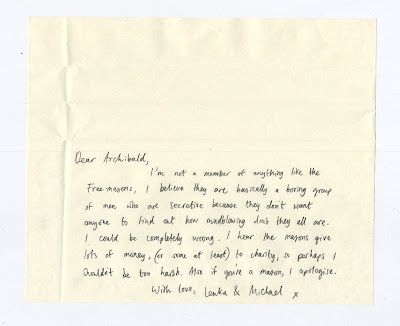 Dear Archibald,
I'm not a member of anything like the
Freemasons, I believe they are basically a boring group
of men who are secretive because they don't want
anyone to find out how mindblowing dorks they all are.
I could be completely wrong. I hear the masons give
lots of money, (or some at least) to charity, so perhaps I
shouldn't be too harsh. Also if you're a mason, I apologise.
With love, Lenka & Michael x